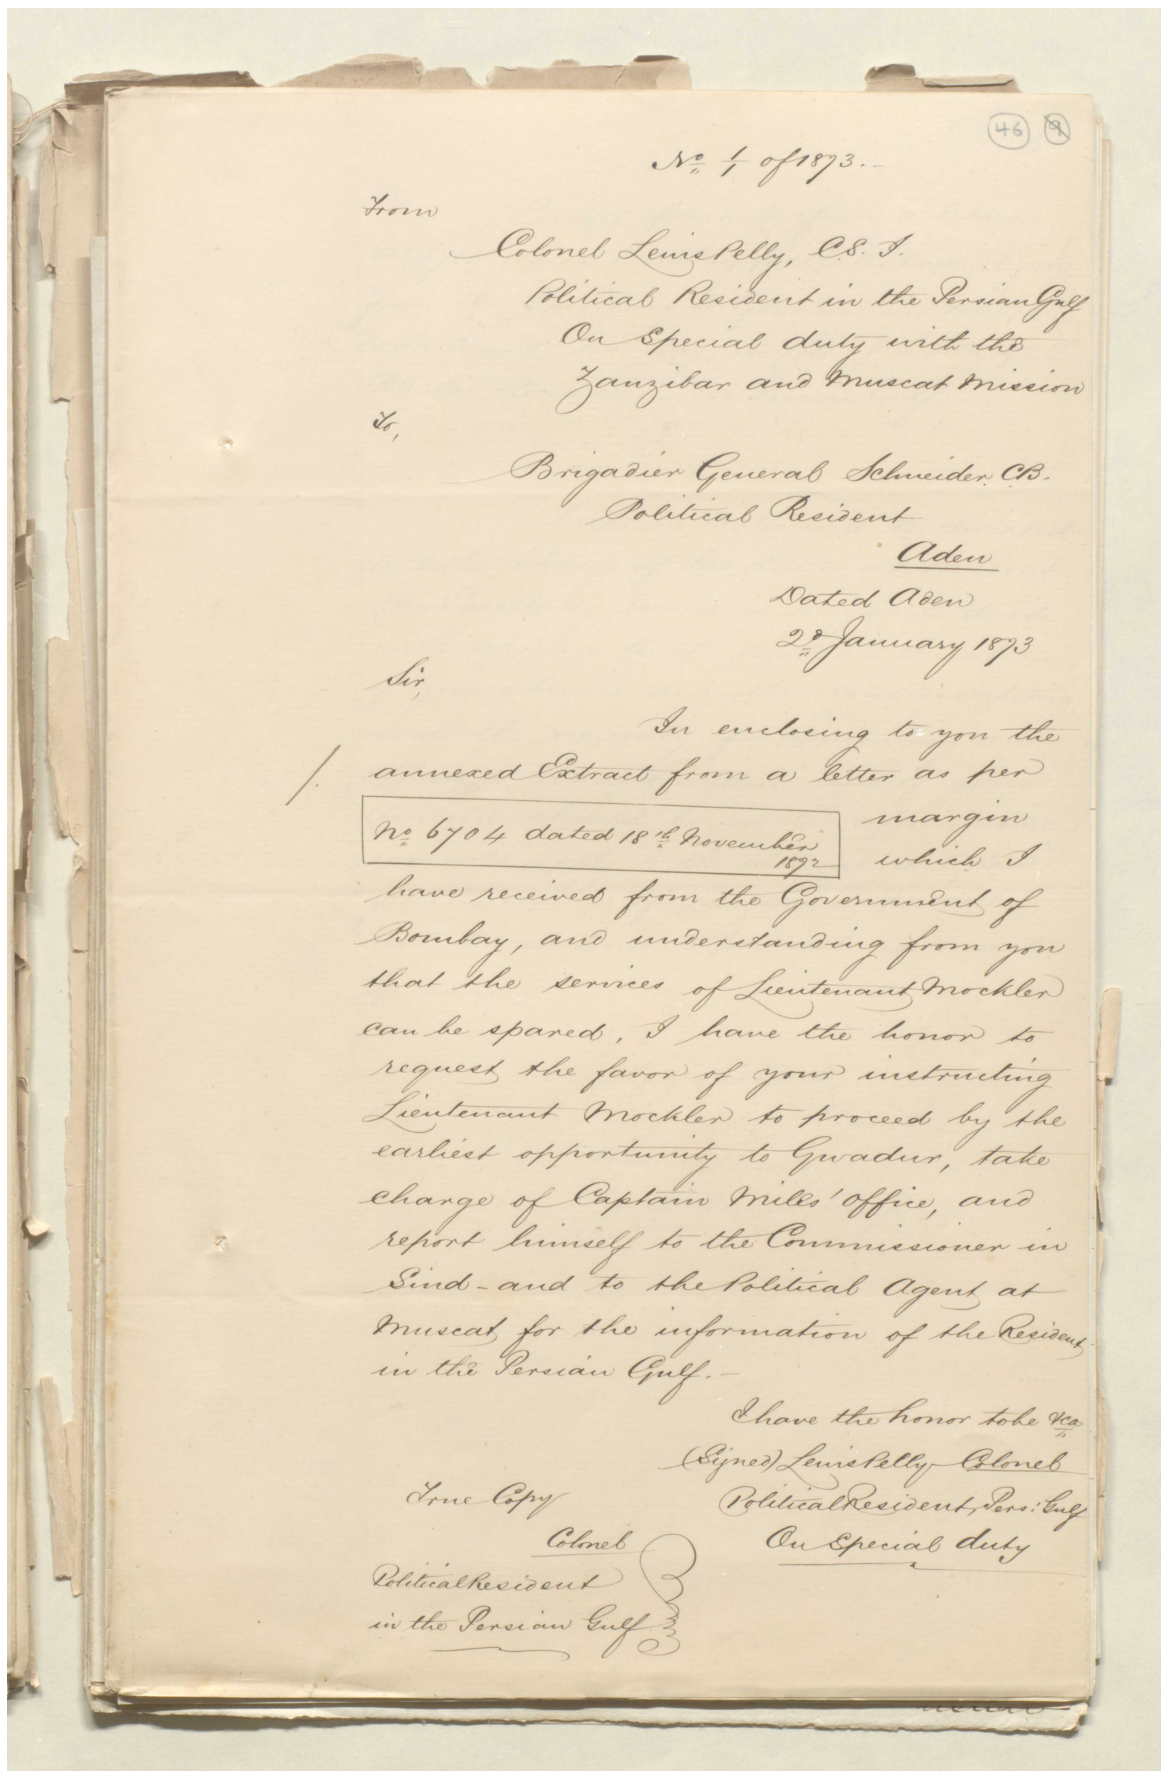 46 9
No 1/1 of 1873.-
From
Colonel Lewis Pelly, C.S.I.
Political Resident in the Persian Gulf
On Special duty with the
Zanzibar and Muscat Mission
To,
Brigadier General Schneider. C.B.
Political Resident
Aden
Dated Aden
2d January 1873
Sir,
In enclosing to you the
1. annexed Extract from a letter as per
margin
No 6704 dated 18th November
1872
which I
have received from the Government of
Bombay, and understanding from you
that the services of Lieutenant Mockler
can be spared, I have the honor to
request the favor of your instructing
Lieutenant Mockler to proceed by the
earliest opportunity to Gwadur, take
charge of Captain Miles' office, and
report himself to the Commissioner in
Sind - and to the Political Agent at
Muscat for the information of the Resident
in the Persian Gulf.-
I have the honor to be &ca
(Signed) Lewis Pelly Colonel
True Copy
Political Resident, Pers: Gulf
Colonel
On Special duty
Political Resident
in the Persian Gulf